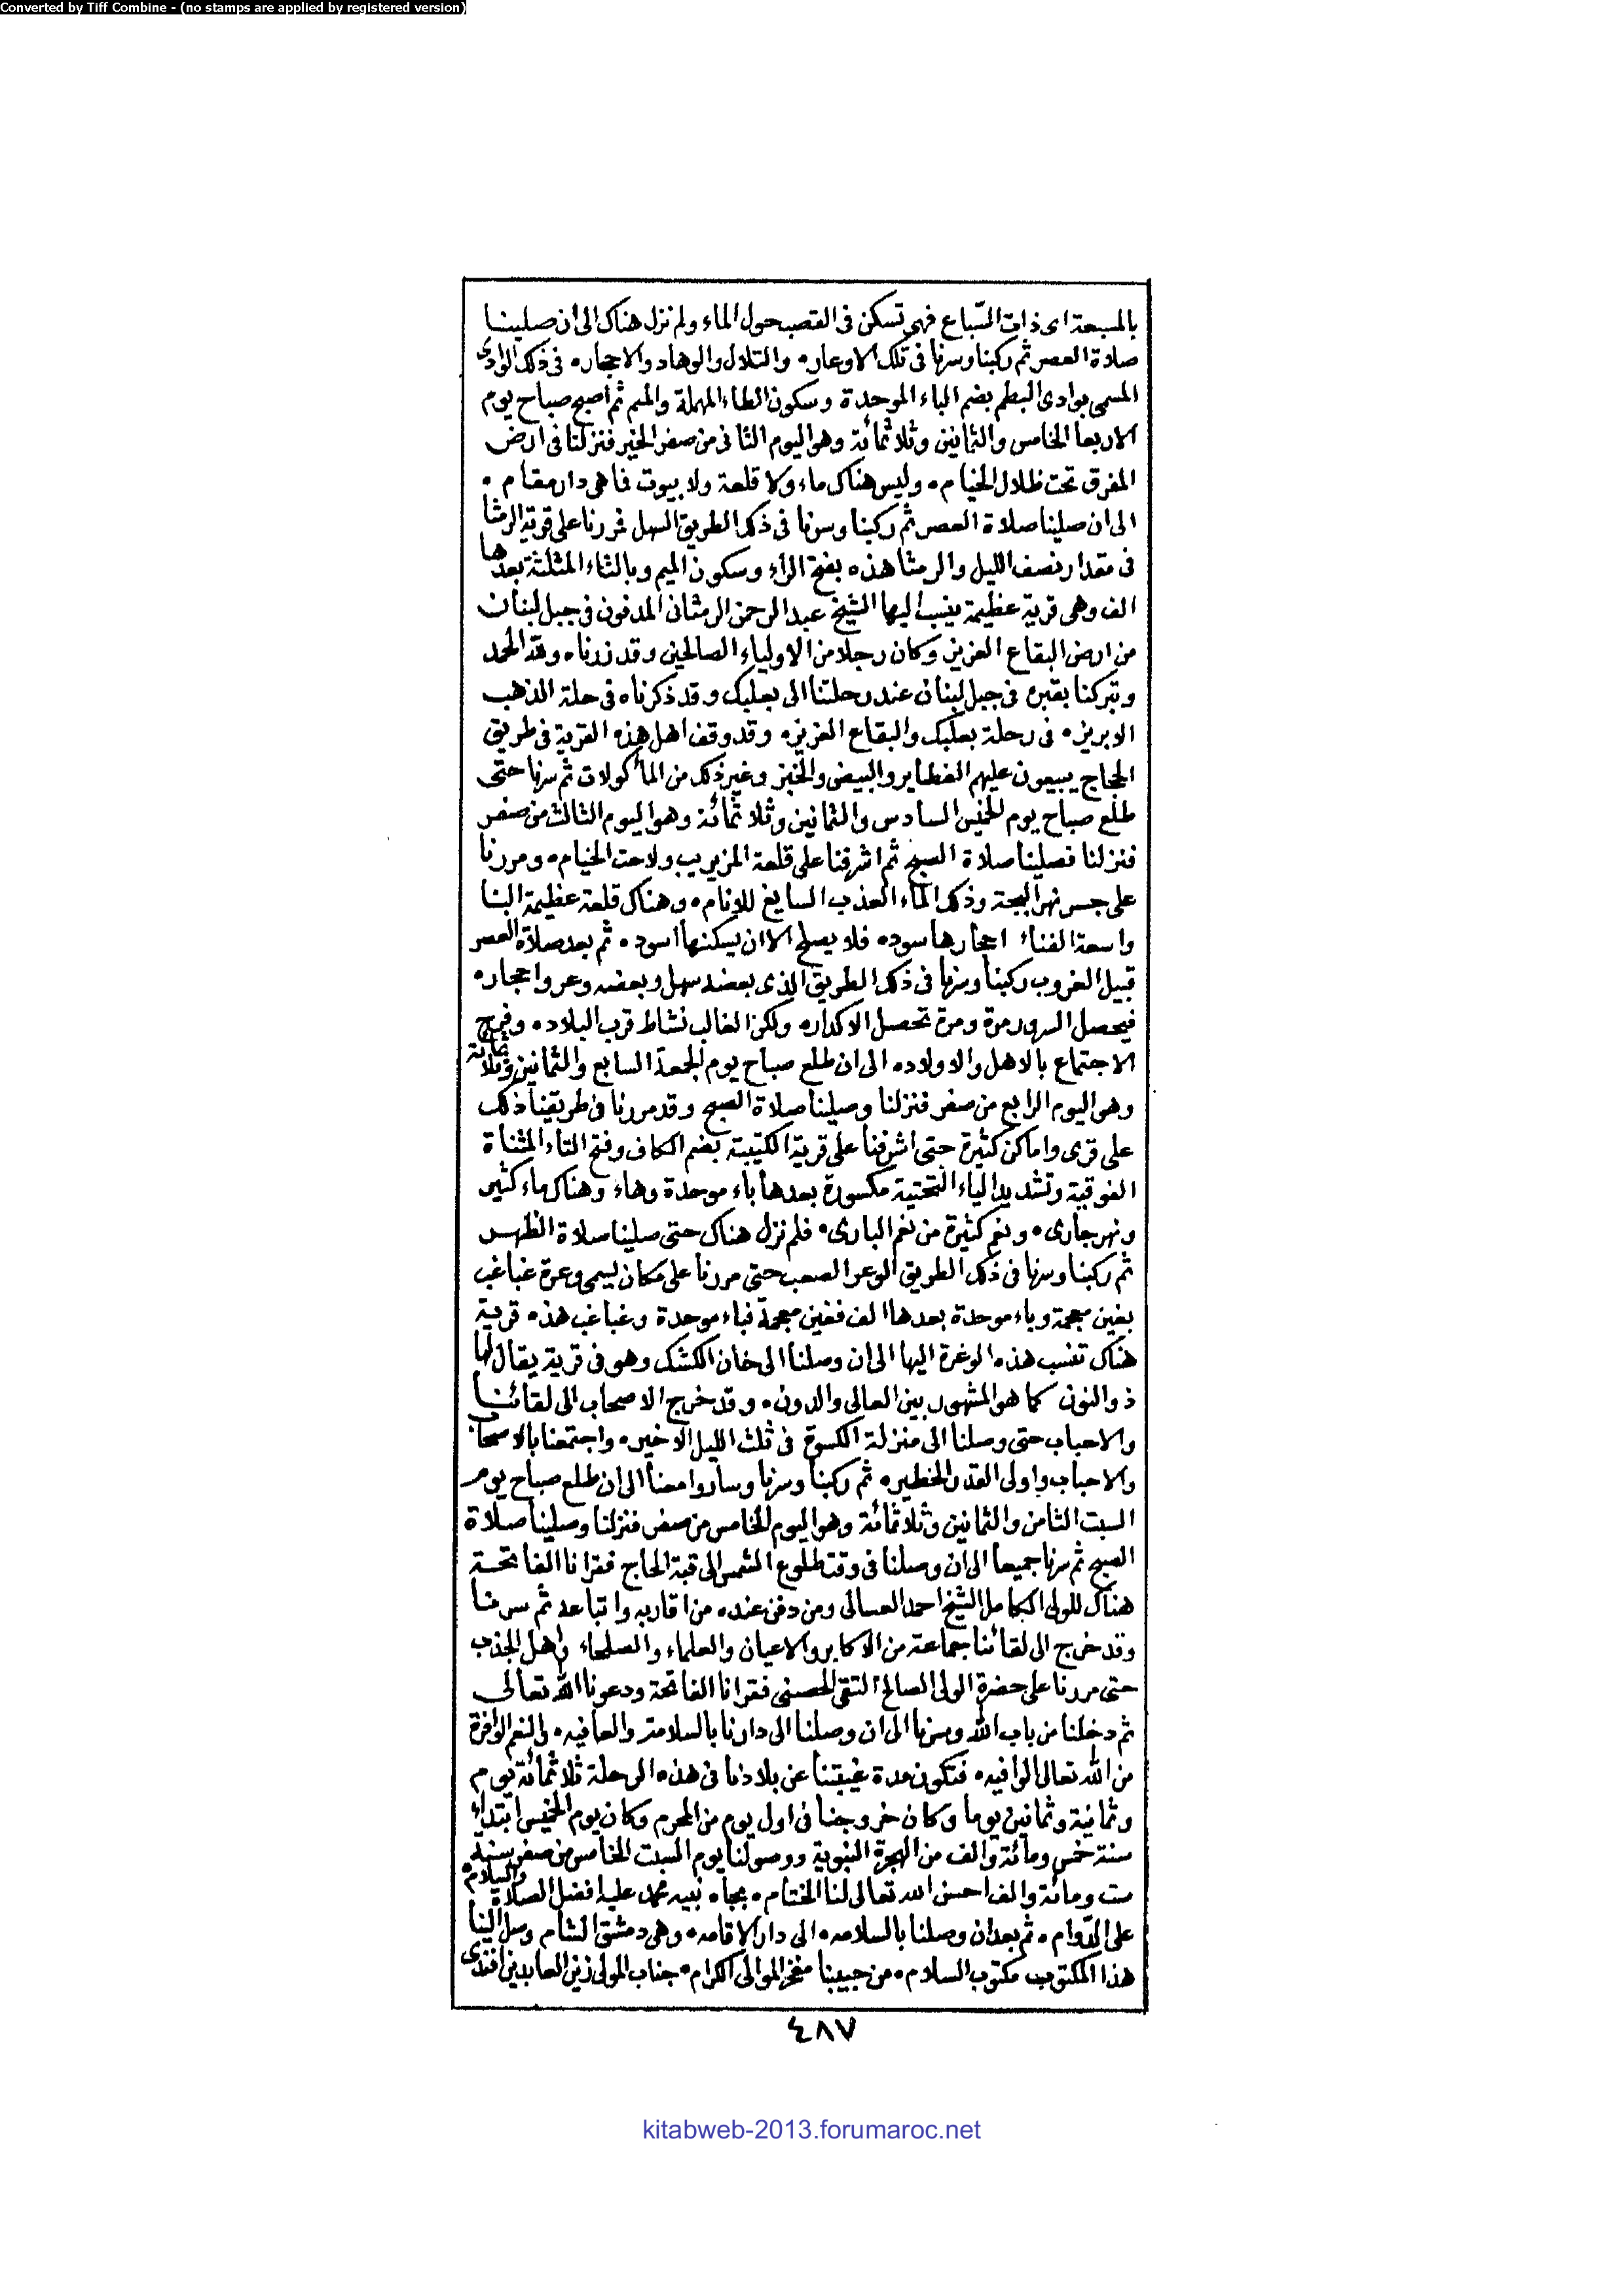 Converted by Tiff Combine - (no stamps are applied by registered version)
بالمسبعة اى ذات السّباع فهى تسكن فى القصب حول الماء ولم نزل هناك الى ان صلينا
صلاة العصر ثم ركبنا وسرنا فى تلك الاوعار ۰ والتلال والوهاد والاحجار ۰ فى ذلك الوادى
المسمى بوادى البطم بضم الباء الموحدة وسكون الطاء المهملة والميم ثم اصبح صباح يوم
الاربعا الخامس والثمانين وثلاثمائة وهو اليوم الثانى من صفر الخير فنزلنا فى ارض
المفرق تحت ظلال الخيام ۰ وليس هناك ماء ولا قلعة ولا بيوت فما هى دار مقام ۰
الى ان صلينا صلاة العصر ثم ركبنا وسرنا فى ذلك الطريق السهل فمررنا على قرية الرمثا
فى مقدار نصف الليل والرمثا هذه بفتح الراء وسكون الميم وبالثاء المثلثة بعدها
الف وهى قرية عظيمة ينسب اليها الشيخ عبد الرحمن الرمثانى المدفون فى جبل لبنان
من ارض البقاع العزيز وكان رجلا من الاولياء الصالحين وقد زرناه ولله الحمد
وتبركنا بقبره فى جبل لبنان عند رحلتنا الى بعلبك وقد ذكرناه فى حلة الذهب
الابريز ۰ فى رحلة بعلبك والبقاع العزيز ۰ وقد وقف اهل هذه القرية فى طريق
الحجاج يبيعون عليهم الفطاير والبيض والخبز وغير ذلك من المأكولات ثم سرنا حتى
طلع صباح يوم الخميس السادس والثمانين وثلاثمائة وهو اليوم الثالث من صفر
فنزلنا فصلينا صلاة الصبح ثم اشرفنا على قلعة المزيريب ولاحت الخيام ۰ ومررنا
على جسر نهر البجة وذلك الماء العذب السايغ للانام ۰ وهناك قلعة عظيمة البنا
واسعة الفناء احجارها سود ۰ فلا يصلح الا ان يسكنها أسود ۰ ثم بعد صلاة العصر
قبيل الغروب ركبنا وسرنا فى ذلك الطريق الذى بعضه سهل وبعضه وعر واحجار ۰
فيحصل السرور مرة ومرة تحصل الاكدار ۰ ولكن الغالب نشاط قرب البلاد ۰ وفرح
الاجتماع بالاهل والاولاد ۰ الى ان طلع صباح يوم الجمعة السابع والثمانين وثلاثمائة
وهو اليوم الرابع من صفر فنزلنا وصلينا صلاة الصبح وقد مررنا فى طريقنا ذلك
على قرى واماكن كثيرة حتى اشرفنا على قرية الكتيبة بضم الكاف وفتح التاء المثناة
الفوقية وتشديد الياء التحتية مكسورة بعدها باء موحدة وهاء وهناك ماء كثير
ونهر جارى ۰ ونعم كثيرة من نعم البارى ۰ فلم نزل هناك حتى صلينا صلاة الظهر
ثم ركبنا وسرنا فى ذلك الطريق الوعر الصعب حتى مررنا على مكان يسمى وعرة غباغب
بغين معجمة وباء موحدة بعدها الف فغين معجمة فباء موحدة وغباغب هذه قرية
هناك تنسب هذه الوعرة اليها الى ان وصلنا الى خان الكشك وهو فى قرية يقال لها
ذو النون كما هو المشهور بين العالى والدون ۰ وقد خرج الاصحاب الى لقائنا
والاحباب حتى وصلنا الى منزلة الكسوة فى ثلث الليل الاخير ۰ واجتمعنا بالاصحاب
والاحباب واولى القدر الخطير ۰ ثم ركبنا وسرنا وساروا معنا الى ان طلع صباح يوم
السبت الثامن والثمانين وثلاثمائة وهو اليوم الخامس من صفر فنزلنا وصلينا صلاة
الصبح ثم سرنا جميعا الى ان وصلنا فى وقت طلوع الشمس الى قبة الحاج فقرانا الفاتحة
هناك للولى الكامل الشيخ احمد العسالى ومن دفن عنده من اقاربه واتباعه ثم سرنا
وقد خرج الى لقائنا جماعة من الاكابر والاعيان والعلماء والصلحاء واهل الجذب
حتى مررنا على حضرة الولى الصالح التقى الحصنى فقرانا الفاتحة ودعونا الله تعالى
ثم دخلنا من باب الله وسرنا الى ان وصلنا الى دارنا بالسلامة والعافيه ۰ والنعم الوافرة
من الله تعالى الوافيه ۰ فتكون مدة غيبتنا عن بلادنا فى هذه الرحلة ثلاثمائة يوم
وثمانية وثمانين يوما وكان خروجنا فى اول يوم من المحرم وكان يوم الخميس ابتداء
سنة خمس ومائة والف من الهجرة النبوية ووصولنا يوم السبت الخامس من صفر سنة
ست ومائة والف احسن الله تعالى لنا الختام ۰ بجاه نبيه محمد عليه افضل الصلاة والسلام
على الدّوام ۰ ثم بعد ان وصلنا بالسلامه ۰ الى دار الاقامه ۰ وهى دمشق الشام وصل الينا
هذا المكتوب مكتوب السلام ۰ من حبيبنا مفخر الموالى الكرام ۰ جناب المولى زين العابدين افندى
٤٨٧
kitabweb-2013.forumaroc.net